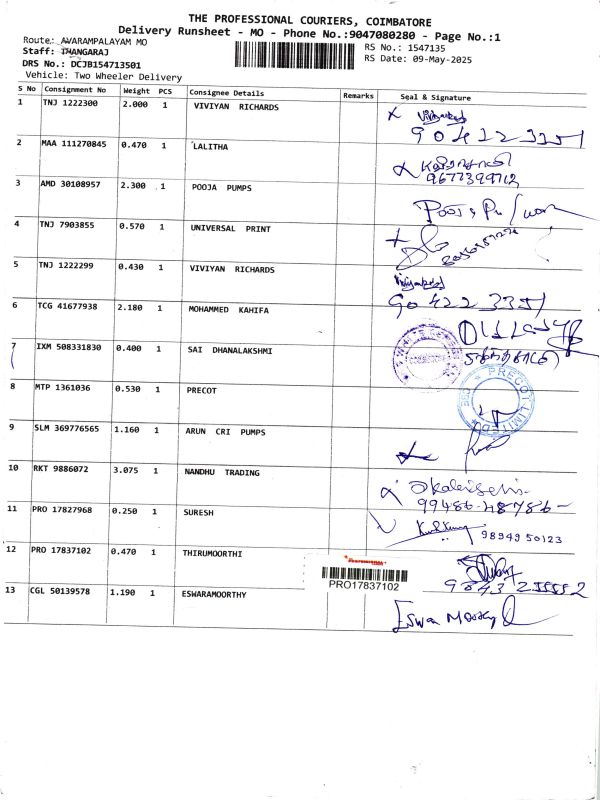 THE PROFESSIONAL COURIERS, COIMBATORE
Delivery Runsheet - MO - Phone No.:9047080280 - Page No.:1
Route: AVARAMPALAYAM MO
Staff: THANGARAJ
DRS No.: DCJB154713501
Vehicle: Two Wheeler Delivery
RS No.: 1547135
RS Date: 09-May-2025
S No Consignment No Weight PCS Consignee Details Remarks Seal & Signature
1 TNJ 1222300 2.000 1 VIVIYAN RICHARDS
2 MAA 111270845 0.470 1 LALITHA
9677399712
3 AMD 30108957 2.300 1 POOJA PUMPS
4 TNJ 7903855 0.570 1 UNIVERSAL PRINT
5 TNJ 1222299 0.430 1 VIVIYAN RICHARDS
90422 3351
6 TCG 41677938 2.180 1 MOHAMMED KAHIFA
7 IXM 508331830 0.400 1 SAI DHANALAKSHMI
8 MTP 1361036 0.530 1 PRECOT
PRECOT LIMITED
9 SLM 369776565 1.160 1 ARUN CRI PUMPS
10 RKT 9886072 3.075 1 NANDHU TRADING
99486-48786-
11 PRO 17827968 0.250 1 SURESH
9894950123
12 PRO 17837102 0.470 1 THIRUMOORTHI
PRO17837102
13 CGL 50139578 1.190 1 ESWARAMOORTHY